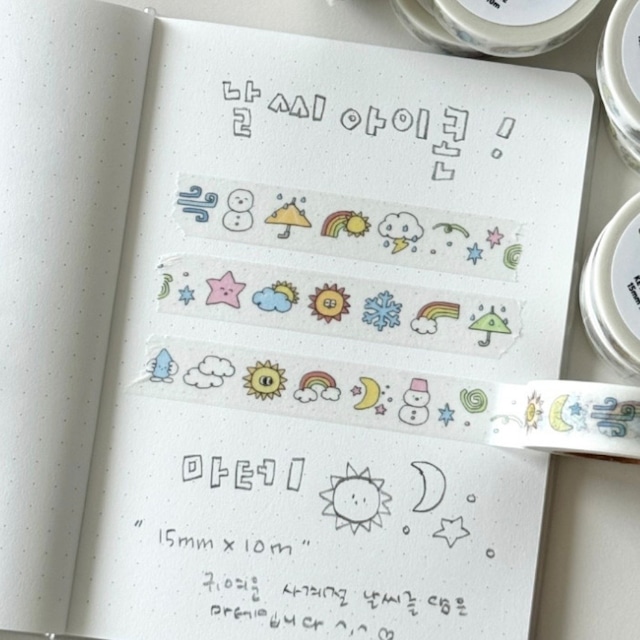 날씨 아이콘!
마테기
"15mm x 10m"
귀여움 사계절 날씨를 담은
마테입니다 ^.^♡